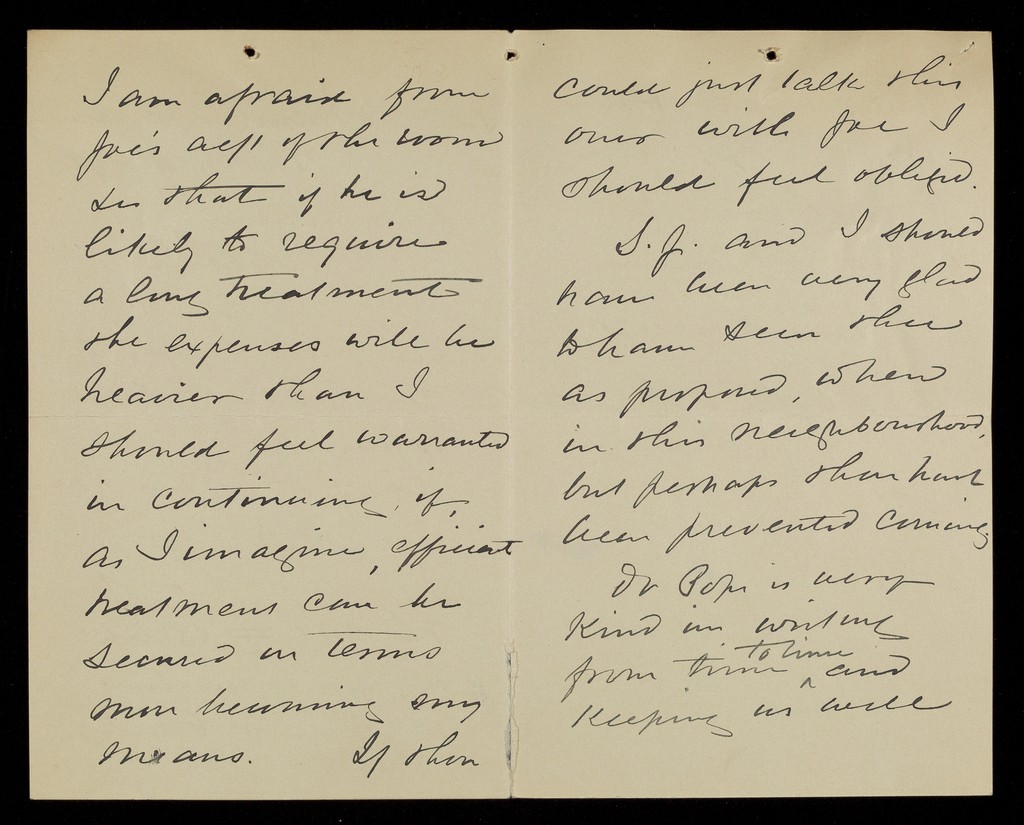 I am afraid from
Joe's acct of the womn
des that if he is
likely to require
a long treatment
the expenses will be
heavier than I
should feel warranted
in continuing, if,
as I imagine, efficient
treatment can be
secured on terms
more becoming my
means. If thou
could just talk this
over with Joe I
should feel obliged.
S. J. and I should
have been very glad
to have seen thee
as proposed, when
in this neighbourhood,
but perhaps thou hast
been prevented coming
Dr Pope is very
kind in writing
from time to time and
keeping us well